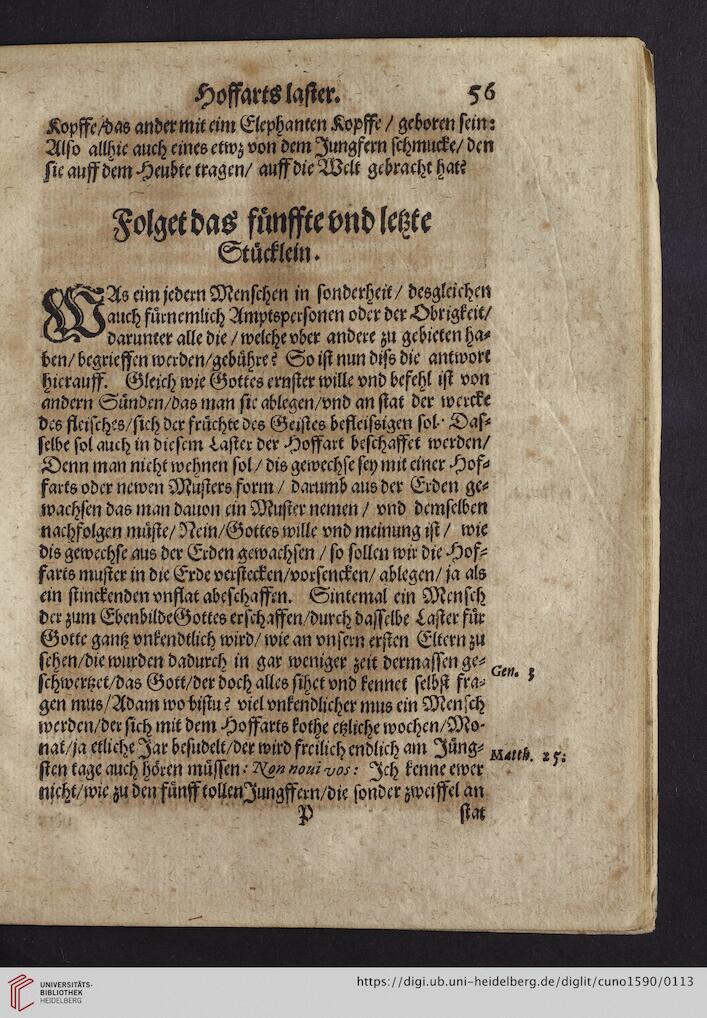 Hoffarts laster. 56
Kopffe/das ander mit eim Elephanten Kopffe / geboren sein:
Also allhie auch eines etwz von dem Jungfern schmucke/ den
sie auff dem Heubte tragen/ auff die Welt gebracht hat?
Folget das fünffte vnd letzte
Stücklein.
WAs eim jedern Menschen in sonderheit / desgleichen
auch fürnemlich Amptspersonen oder der Obrigkeit/
darunter alle die / welche vber andere zu gebieten ha-
ben/ begrieffen werden/gebühre? So ist nun diss die antwort
hierauff. Gleich wie Gottes ernster wille vnd befehl ist von
andern Sünden/das man sie ablegen/vnd an stat der wercke
des fleisches/sich der früchte des Geistes befleissigen sol. Das-
selbe sol auch in diesem Laster der Hoffart beschaffet werden/
Denn man nicht wehnen sol / dis gewechse sey mit einer Hof-
farts oder newen Musters form / darumb aus der Erden ge-
wachsen das man dauon ein Muster nemen / vnd demselben
nachfolgen müste/ Nein/Gottes wille vnd meinung ist / wie
dis gewechse aus der Erden gewachsen / so sollen wir die Hof-
farts muster in die Erde verstecken/vorsencken/ ablegen/ ja als
ein stinckenden vnflat abeschaffen. Sintemal ein Mensch
der zum Ebenbilde Gottes erschaffen/durch dasselbe Laster für
Gotte gantz vnkendtlich wird/ wie an vnsern ersten Eltern zu
sehen/die wurden dadurch in gar weniger zeit dermassen ge-
schwertzet/das Gott/der doch alles sihet vnd kennet selbst fra-
Gen. 3
gen mus/Adam wo bistu? viel vnkendlicher mus ein Mensch
werden/der sich mit dem Hoffarts kothe etzliche wochen/Mo-
nat/ja etliche Jar besudelt/der wird freilich endlich am Jüng-
Matth. 25:
sten tage auch hören müssen: Non noui vos: Ich kenne ewer
nicht/wie zu den fünff tollen Jungffern/die sonder zweiffel an
P stat
UNIVERSITÄTS-
BIBLIOTHEK
HEIDELBERG
https://digi.ub.uni-heidelberg.de/diglit/cuno1590/0113